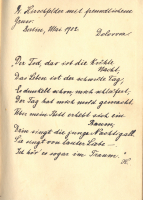 H. Hirschfelder mit freundlichem
Berlin, Mai 1902.
„Der Tod, das ist die kühle
Nacht,
Das Leben ist der schwüle Tag;
Es dunkelt schon, mich schläfert,
Der Tag hat mich müd gemacht.
Über mein Bett erhebt sich ein
Baum,
Drin singt die junge Nachtigall,
Sie singt von lauter Liebe –
Ich hör' es sogar im Traum."